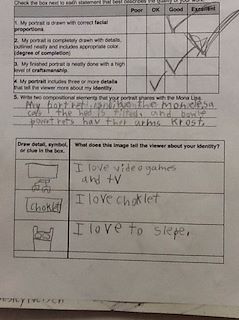 Check the box next to each statement that best describes the quality of your work.
Poor OK Good Excellent
1. My portrait is drawn with correct facial
proportions.
2. My portrait is completely drawn with details,
outlined neatly and includes appropriate color.
(degree of completion)
3. My finished portrait is neatly done with a high
level of craftsmanship.
4. My portrait includes three or more details
that tell the viewer more about my identity.
5. Write two compositional elements that your portrait shares with the Mona Lisa.
My portret and the monelesa
the hed is and
powrtrets hav ther arms krost.
Draw detail, symbol,
or clue in the box.
What does this image tell the viewer about your identity?
I love videogames
and tv
choklet
I love choklet
I love to slepe.